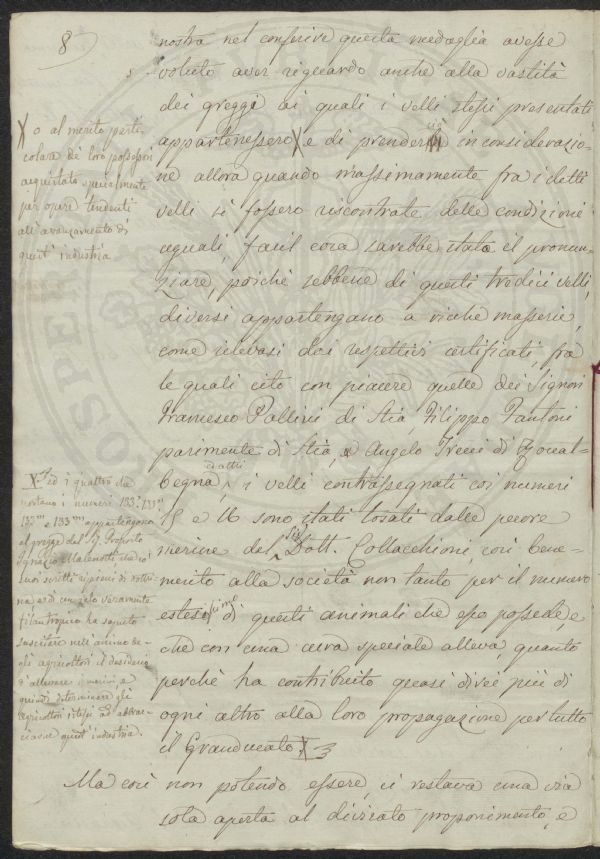 8
nostra nel conferire questa medaglia avesse
voluto aver riguardo anche alla vastità
dei greggi ai quali i velli stessi presentati
appartenessero X e di prender in considerazio-
ne allora quando massimamente fra i detti
velli si fossero riscontrate delle condizioni
eguali, facil cosa sarebbe stata il pronun-
ziare, poichè sebbene di questi tredici velli,
diversi appartengano a ricche masserie,
come rilevasi dai respettivi certificati, fra
le quali cito con piacere quelle dei Signori
Francesco Pallini di Stia, Filippo Fantoni
parimente di Stia, e Angelo di
begna, i velli contrassegnati coi numeri
15 e 16 sono stati tosati dalle pecore
merine del Sig. Dott. Collacchioni, così bene-
merito alla società non tanto per il numero
estesissimo di questi animali che esso possede, e
che con una cura speciale alleva, quanto
perchè ha contribuito quasi direi più di
ogni altro alla loro propagazione per tutto
il Granducato X
Ma così non potendo essere, ci restava una via
sola aperta al divisato proponimento, e
X o al merito parti
colare de' loro possessori
acquistato specialmente
per opere tendenti
all'avanzamento di
quest'industria
X ed i quattro che
portano i numeri 183, 183
183 e 183 appartengono
al gregge del Sig. Proposto
Ignazio Malenotti che co'
suoi scritti ripieni di dottri
na e di uno zelo veramente
filantropico ha saputo
suscitare nell'animo de-
gli agricoltori il desiderio
d'allevare i merini, e
quindi determinare gli
agricoltori istessi ad abbrac-
ciare quest'industria.